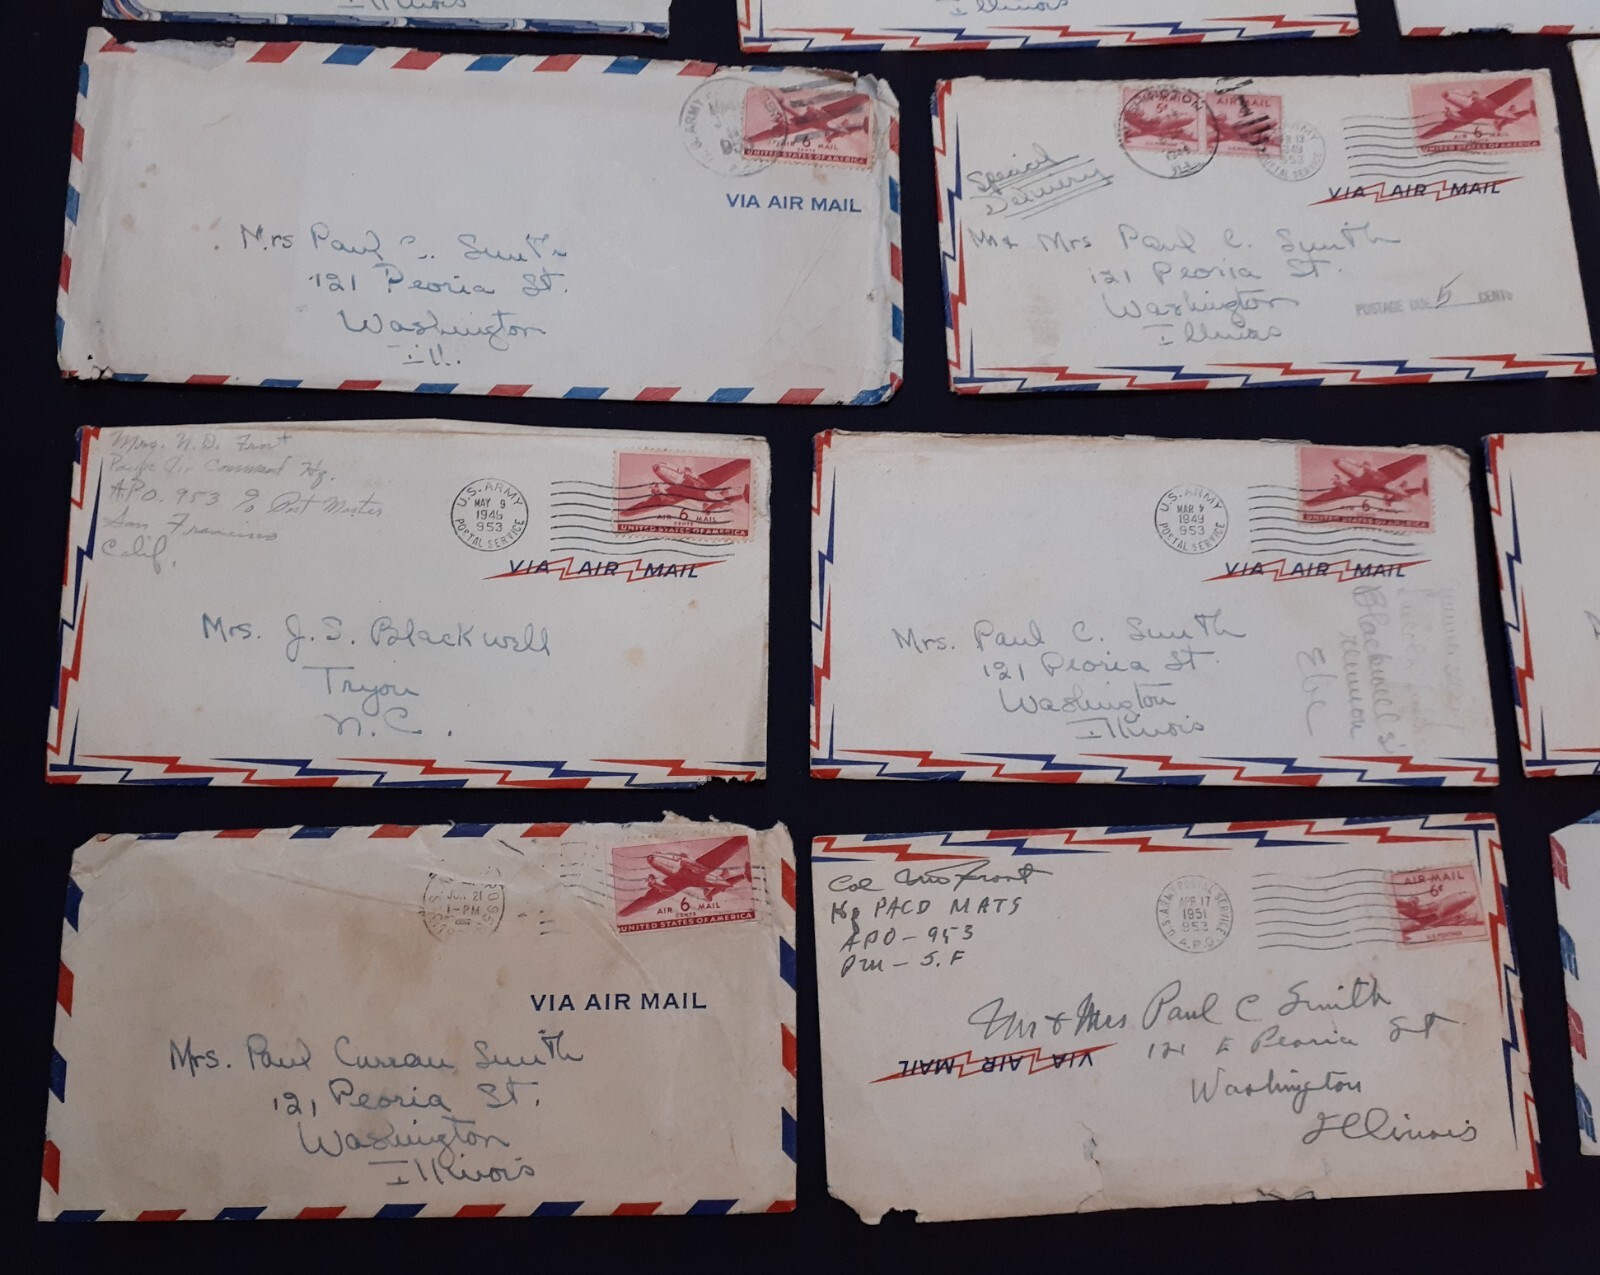 Illinois
Illinois
U.S. ARMY
6
AIR MAIL
CENTS
UNITED STATES OF AMERICA
VIA AIR MAIL
Mrs Paul C. Smith
121 Peoria St.
Washington
Ill.
5¢
AIR MAIL
6
AIR MAIL
UNITED STATES OF AMERICA
1949
953
POSTAL SERVICE
VIA AIR MAIL
Special
Delivery
Mr + Mrs Paul C. Smith
121 Peoria St.
Washington
Illinois
POSTAGE DUE 5 CENTS
Mrs. N. D. Frost
Pacific Air Command Hq.
A.P.O. 953 c/o Post Master
San Francisco
Calif.
U.S. ARMY
MAY 9
1949
953
POSTAL SERVICE
6
AIR MAIL
CENTS
UNITED STATES OF AMERICA
VIA AIR MAIL
Mrs. J. S. Blackwell
Tryon
N.C.
U.S. ARMY
MAR
1949
953
POSTAL SERVICE
6
AIR MAIL
UNITED STATES OF AMERICA
VIA AIR MAIL
Mrs. Paul C. Smith
121 Peoria St.
Washington
Illinois
Blackwell's
Etc
21
1-PM
6
AIR MAIL
CENTS
UNITED STATES OF AMERICA
VIA AIR MAIL
Mrs. Paul Curran Smith
121 Peoria St.
Washington
Illinois
Col Frost
Hq PACD MATS
APO - 953
PM - S.F
U.S. ARMY POSTAL SERVICE
APR 17
1951
953
A.P.O.
AIR MAIL
6¢
U.S. POSTAGE
Mr & Mrs Paul C Smith
121 E Peoria St
VIA AIR MAIL
Washington
Illinois